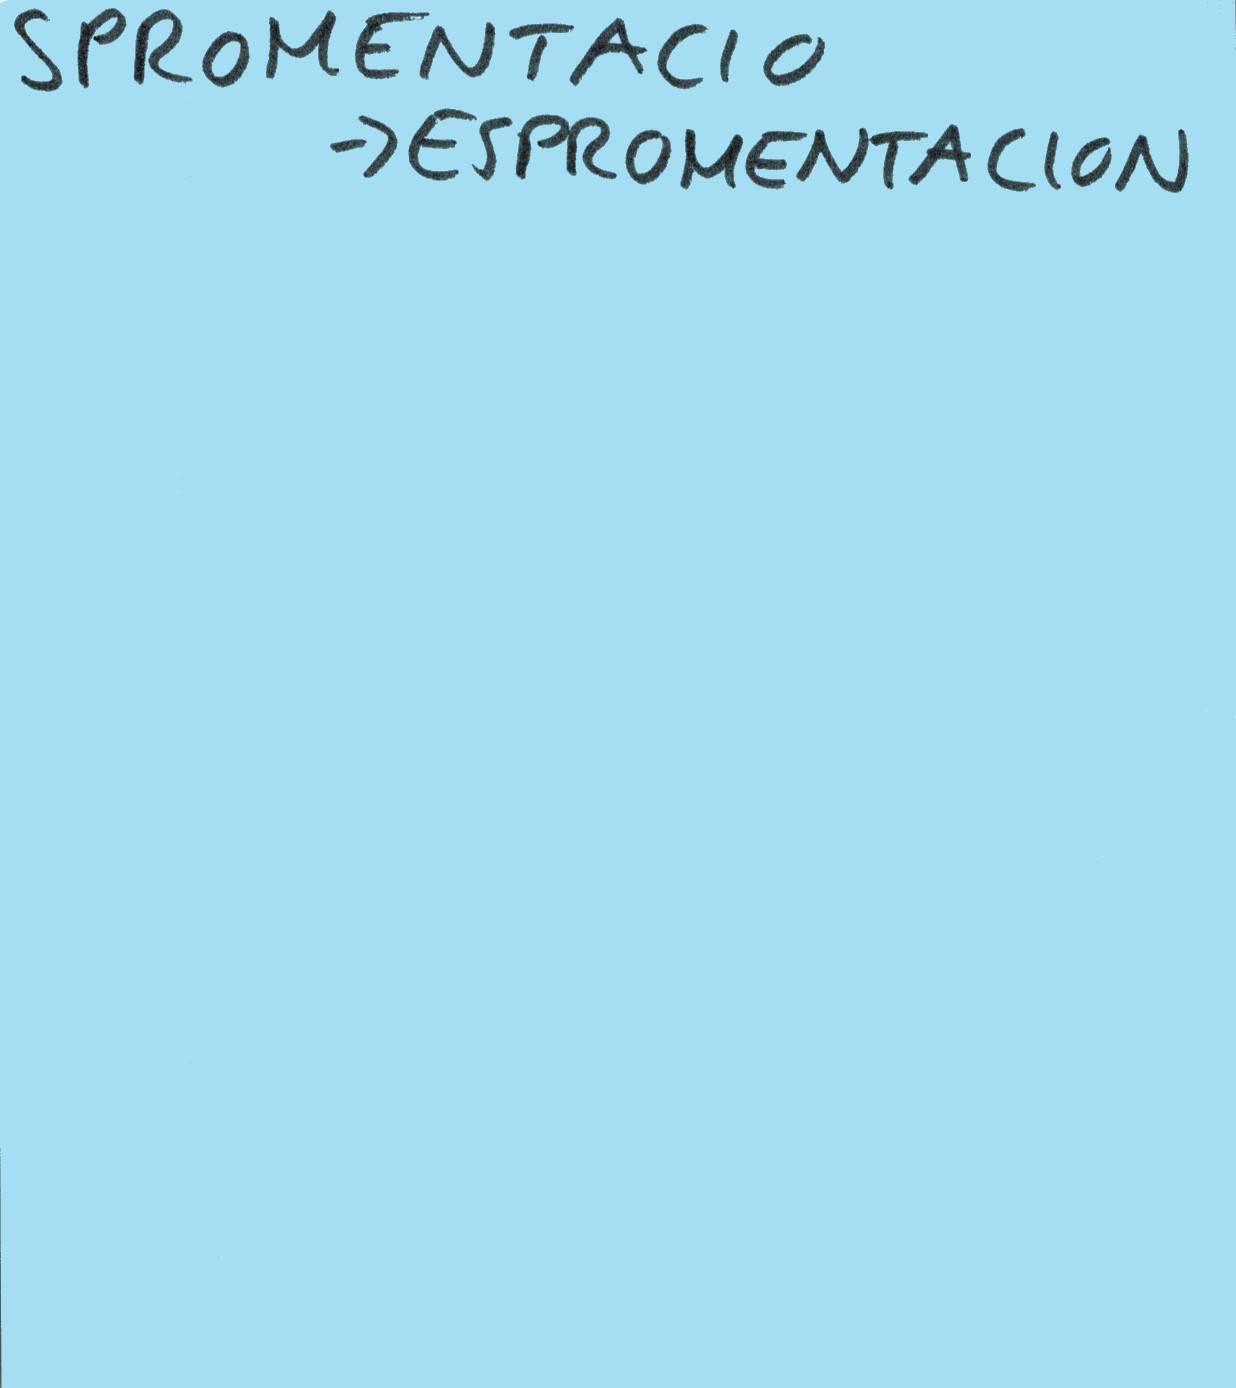 SPROMENTACIO
->ESPROMENTACION